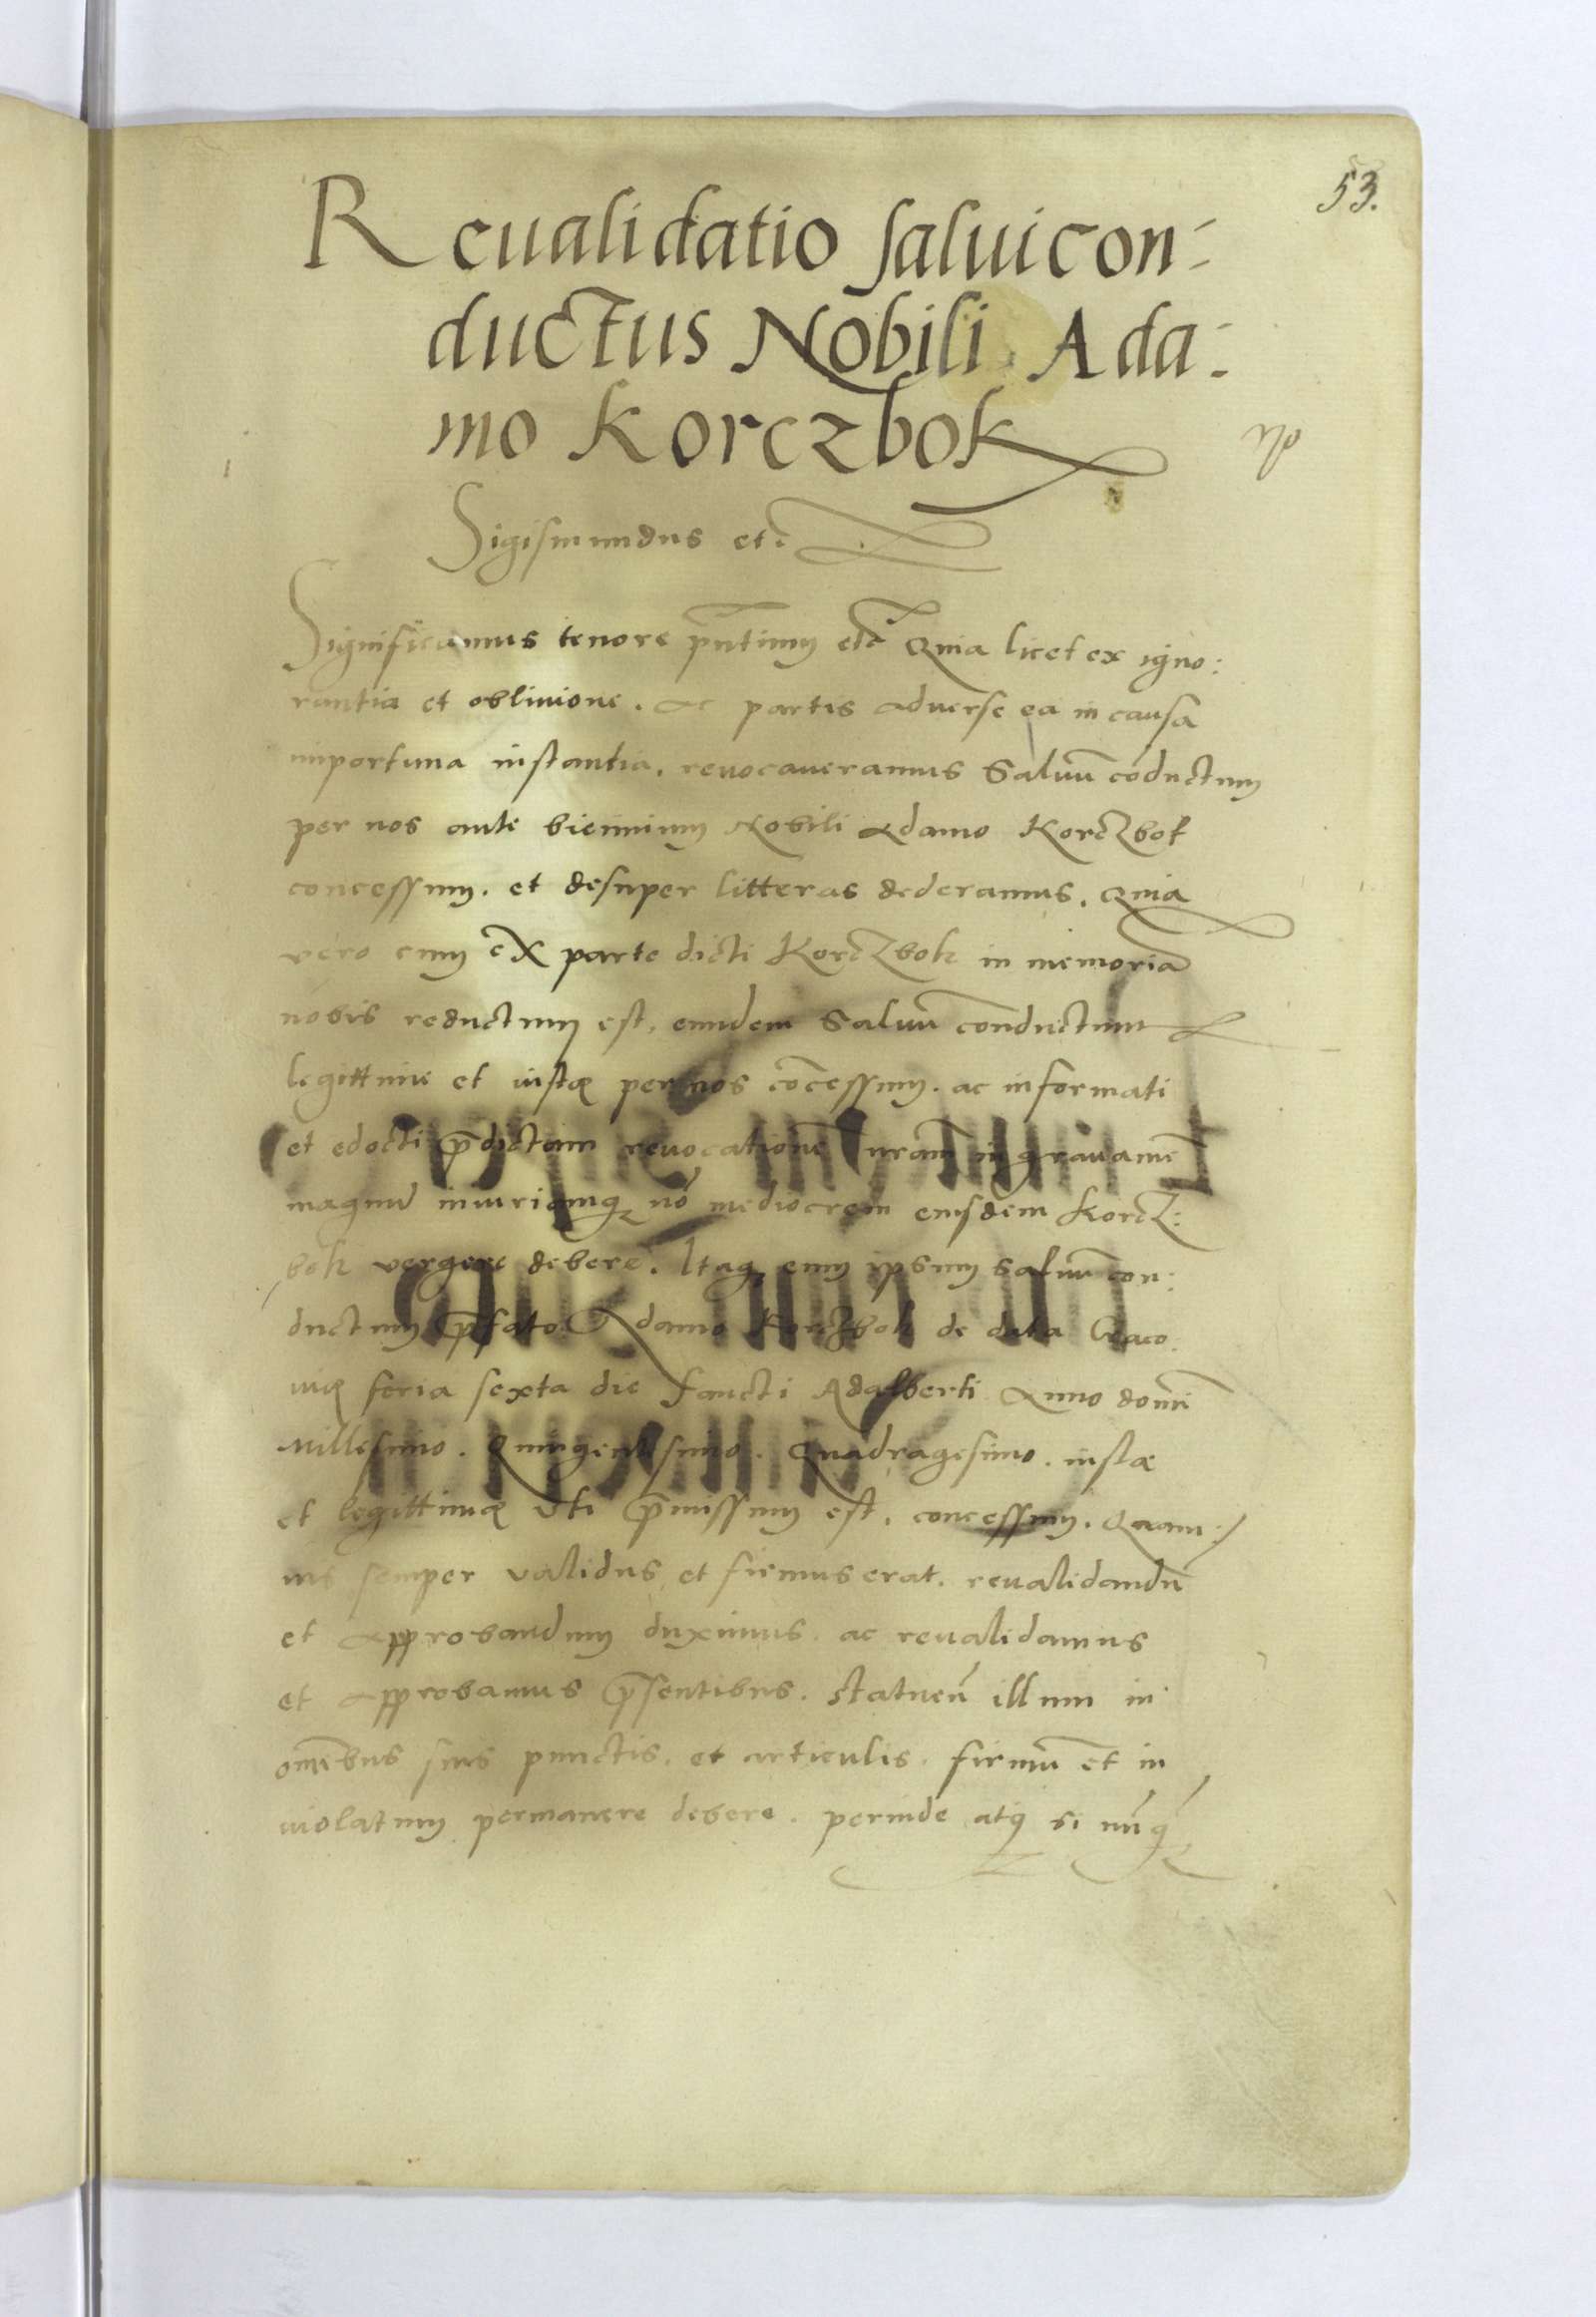 53.
Reualidatio salui con-
ductus Nobili Ada-
mo Korczbok
Sigismundus etc
Significamus tenore p̄ntium etc̄ Quia licet ex igno:
rantia et obliuione. ac partis aduerse ea in causa
importuna instantia. reuocaueramus Saluū cōductum
per nos ante biennium Nobili Adamo Korczbok
concessum. et desuper litteras dederamus. Quia
vero cum ex parte dicti Korczbok in memoriā
nobis reductum est, eundem Saluū conductum
legittime et iustę per nos cōcessum. ac informati
et edocti p̄dictam reuocationē nram̄ in grauamē
magnū iniuriamq; nō mediocrem eiusdem Korcz:
bok vergere debere. Itaq; eum ipsum saluū con:
ductum p̄fato Adamo Korczbok de data Craco
uię feria sexta die sancti Adalberti Anno domī
Millesimo. Quingentesimo. Quadragesimo. iustę
et legittimę vti p̄missum est, concessum. Quam:
uis semper validus et firmus erat. reualidandū
et approbandum duximus. ac reualidamus
et approbamus p̄sentibus. statuen̄ illum in
omībus suis punctis. et articulis. firmū et in
uiolatum permanere debere. perinde atq; si nūq̄